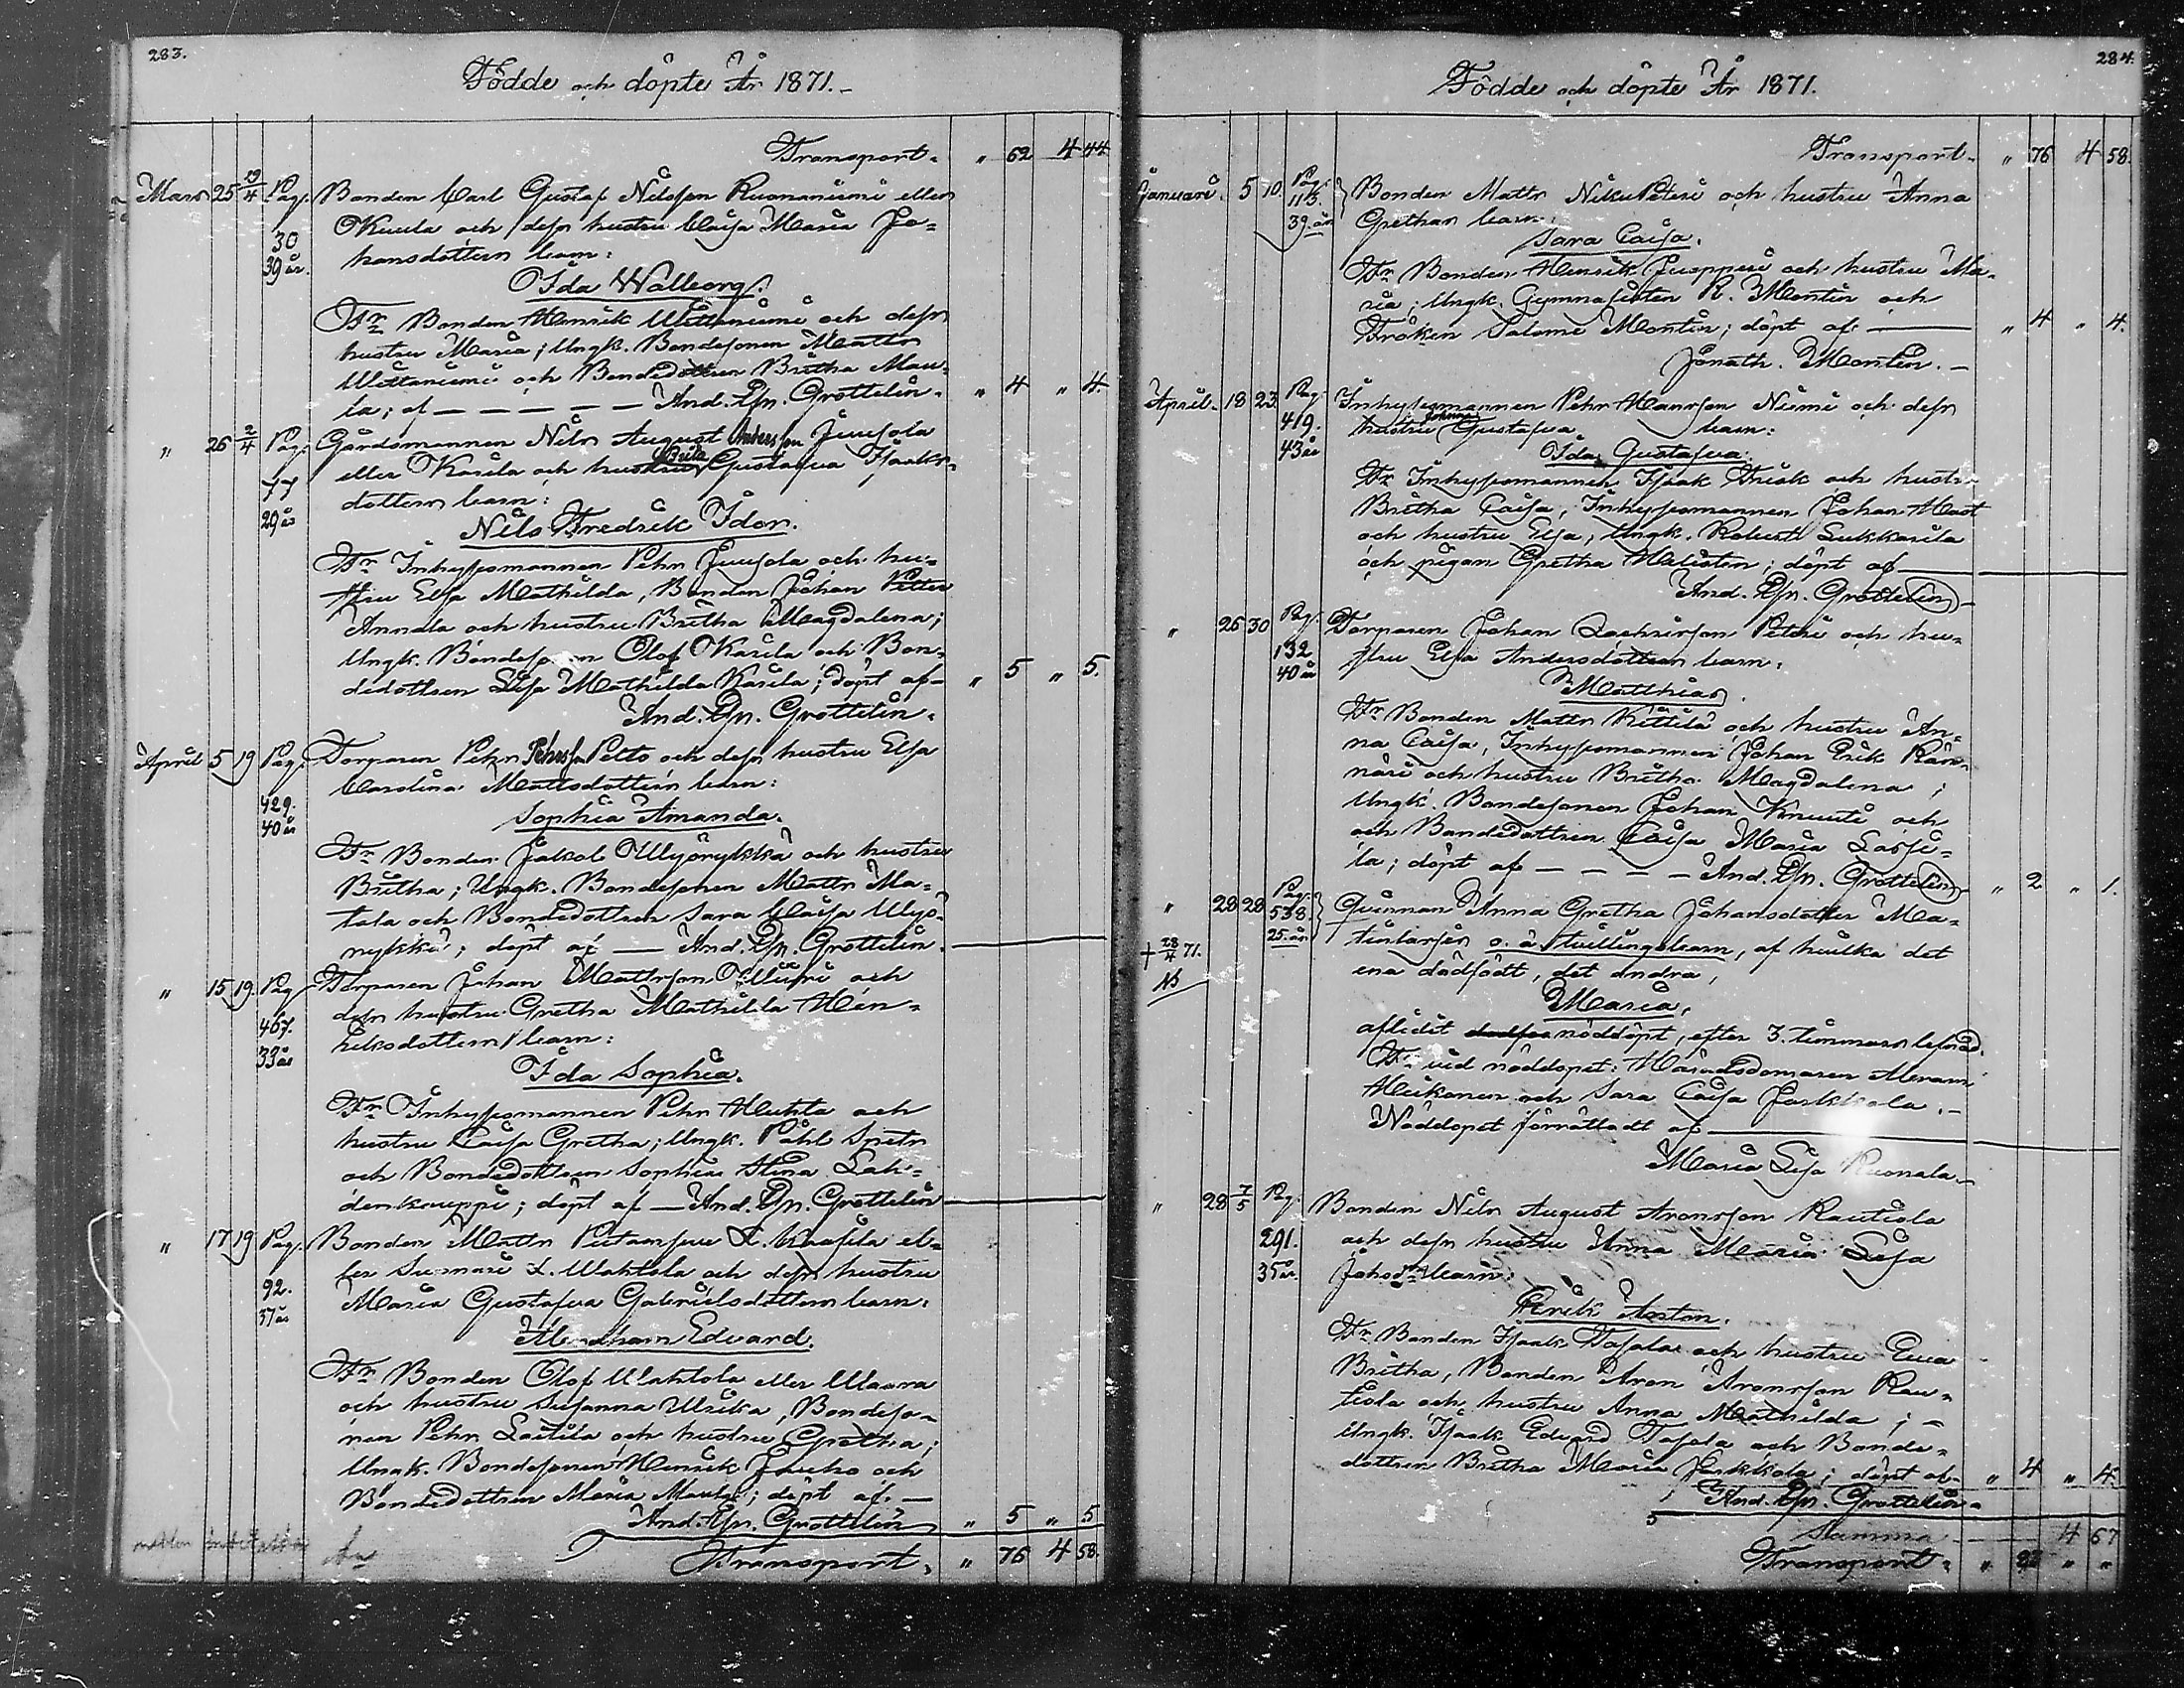 283.
Födde och döpte År 1871.
Transport. " 62 4 44
Mars 25 19/4 Pag. Bonden Carl Gustaf Nilsson Ruonaniemi eller
30 Kuula och dess hustru Caisa Maria Jo=
39 år. hansdotters barn:
Ida Walborg.
Fr Bonden Henrik Wittaniemi och dess
hustru Maria; Ungk. Bondesonen Matts
Wittaniemi och Bondedottren Britha Mau=
la; af — — — — — And. Joh. Grottelin. " 4 " 4.
" 26 2/4 Pag. Gårdsmannen Nils August Andersson Juusola
77 eller Karila och hustru Brita Gustafva Isaaks=
29 år dotters barn:
Nils Fredrik Idor.
Fr Inhysesmannen Pehr Juusola och hu=
stru Elsa Mathilda, Bonden Johan Petter
Annala och hustru Britha Magdalena;
Ungk. Bondesonen Olof Karila och Bon=
dedottren Lisa Mathilda Karila; döpt af — " 5 " 5.
And. Joh. Grottelin.
April 5 19 Pag. Torparen Pehr Pehrsson Pelto och dess hustru Elsa
429. Carolina Mattsdotters barn:
40 år
Sophia Amanda.
Fr Bonden Jakob Yliörykkä och hustru
Britha; Ungk. Bondesonen Matts Ma=
tala och Bondedottren Sara Caisa Ylyö=
rykkä; döpt af — And. Joh. Grottelin.
" 15 19. Pag Torparen Johan Mattsson och
467. dess hustru Gretha Mathilda Hen=
33 år riksdotters barn:
Ida Sophia.
Fr Inhysesmannen Pehr Huhta och
hustru Caisa Gretha; Ungk. Påhl
och Bondedottren Sophia Stina Lah=
denkauppi; döpt af — And. Joh. Grottelin
" 17 19 Pag. Bonden Matts
92. ler och dess hustru
37 år Maria Gustafva Gabrielsdotters barn:
Abraham Edvard.
Fr Bonden Olof Wahtola eller Waara
och hustru Susanna Ulrika, Bondeso=
nen Pehr Laitila och hustru Gretha;
Ungk. Bondesonen Henrik och
Bondedottren Maria Maula; döpt af —
And. Joh. Grottelin " 5 " 5
Transport. " 76 4 58.
284.
Födde och döpte År 1871.
Transport. " 76 4 58.
Januari. 5 10. Pag. Bonden Matts NikuPeteri och hustru Anna
113. Grethas barn:
39. år
Sara Caisa.
Fr Bonden Henrik Juopperi och hustru Ma=
ria; Ungk. Gymnasisten R. Montin och
Fröken Salome Montin; döpt af — " 4 " 4.
Jonath. Montin. —
April. 18 23. Pag Inhysesmannen Pehr Hansson Niemi och dess
419. hustru Johanna Gustafva barn:
43 år
Ida Gustafva.
Fr Inhysesmannen Isaak Frisk och hustr.
Britha Caisa, Inhysesmannen Johan Mast
och hustru Elsa, Ungk. Robert Lukkarila
och pigan Gretha Heliston; döpt af
And. Joh. Grottelin —
" 26 30 Pag. Torparen Johan Zachrisson Peteri och hu=
132 stru Elsa Andersdotters barn:
40 år
Matthias.
Fr Bonden Matts Kittilä och hustru An=
na Caisa, Inhysesmannen Johan Erik Rän=
näri och hustru Britha Magdalena;
Ungk. Bondesonen Johan Knuuti och
och Bondedottren Caisa Maria Lassi=
la; döpt af — — — — And. Joh. Grottelin " 2 " 1.
" 28 28 Pag. Qvinnan Anna Gretha Johansdotter Ma=
538. tinlassis o. ä. tvillingebarn, af hvilka det
25. år
† 28/4 71. ena dödfödt, det andra,
NB
Maria,
aflidit dödfö nöddöpt, efter 3. timmars lefnad.
Fr vid nöddopet: Häradsdomaren Abram
Heikonen och Sara Caisa Jarkkola. —
Nöddopet förrättadt af —
Maria Lisa Ruonala —
" 28 7/5 Pag. Bonden Nils August Aronsson Rautiola
291. och dess hustru Anna Maria Lisa
35 år Johsdr. barn:
Erik Anton.
Fr Bonden Isaak Tosola och hustru Eva
Britha, Bonden Aron Aronsson Rau=
tiola och hustru Anna Mathilda; —
Ungk. Isaak Edvard Tosola och Bonde=
dottren Britha Maria Jarkkola; döpt af — " 4 " 4.
And. Joh. Grottelin —
Summa — — 4 67
Transport. " " "